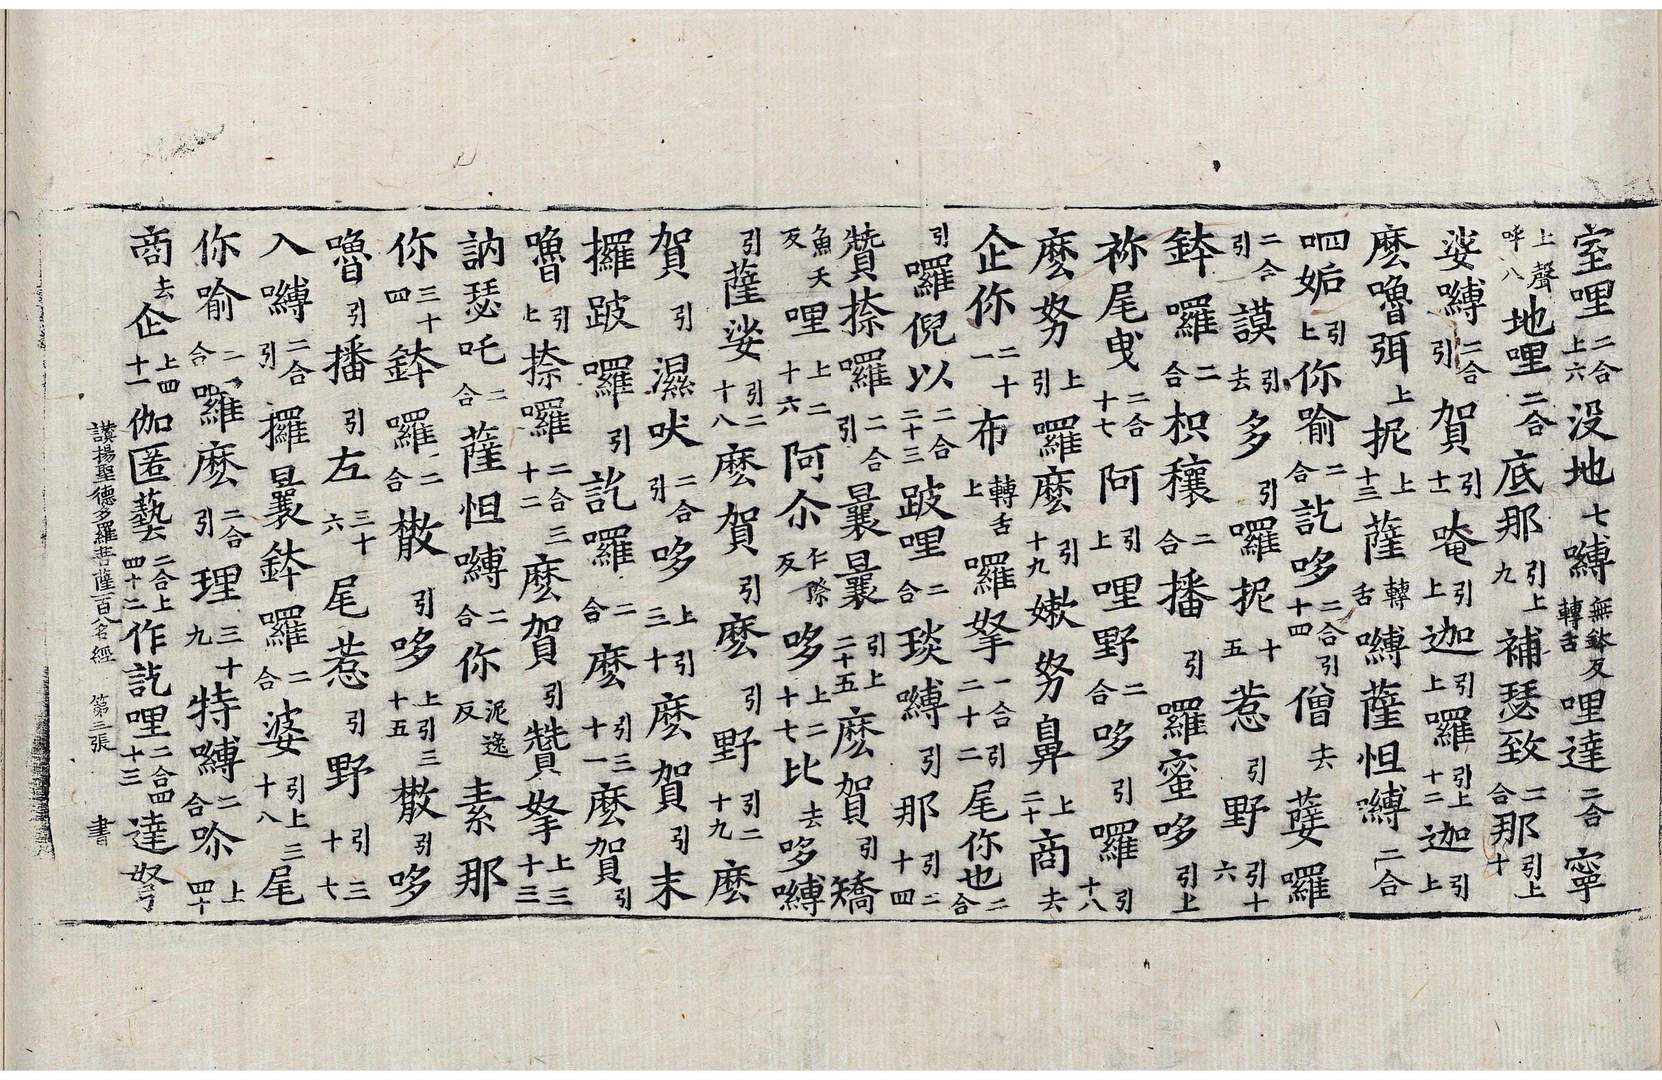 室哩二合上六没地七嚩無鉢反轉舌哩達二合寧
上聲呼八地哩二合底那引上九補瑟致二合那引上十
娑嚩二合引賀引十一唵引上迦引上囉引上十二迦引上
麼嚕弭上抳上十三薩轉舌嚩薩怛嚩二合
呬姤引上你喻二合訖哆二合引十四僧去蘖囉
二合引謨引去多引囉抳十五惹引野引十六
鉢囉二合枳穰二合播引囉蜜哆引上
祢尾曳二合十七阿引上哩野二合哆引囉引十八
麼努上引囉麼引十九嫰努鼻上二十商去
企你二十一布轉舌上囉拏一合引二十二尾你也二合
引囉倪以二合二十三跛哩二合琰嚩引那引二十四
贊捺囉二合引曩曩引上二十五麼賀引矯
魚夭反哩上二十六阿尒仁際反哆上二十七比去哆嚩
引薩娑引二十八麼賀引麼引野引二十九麼
賀引濕吠二合引哆上引三十麼賀引末
攞跛囉引訖囉二合麼引三十一麼賀引
嚕引上捺囉二合三十二麼賀引贊拏上三十三
訥瑟吒二合薩怛嚩二合你泥逸反素那
你三十四鉢囉二合散引哆上引三十五散引哆
嚕引播引左三十六尾惹引野引三十七
入嚩二合引攞曩鉢囉二合婆引上三十八尾
你喻二合囉麼二合引理三十九特嚩二合吤上四十
商去企上四十一伽匿藝二合上四十二作訖哩二合四十三達弩
讚揚聖德多羅菩薩一百八名經　第三張　書